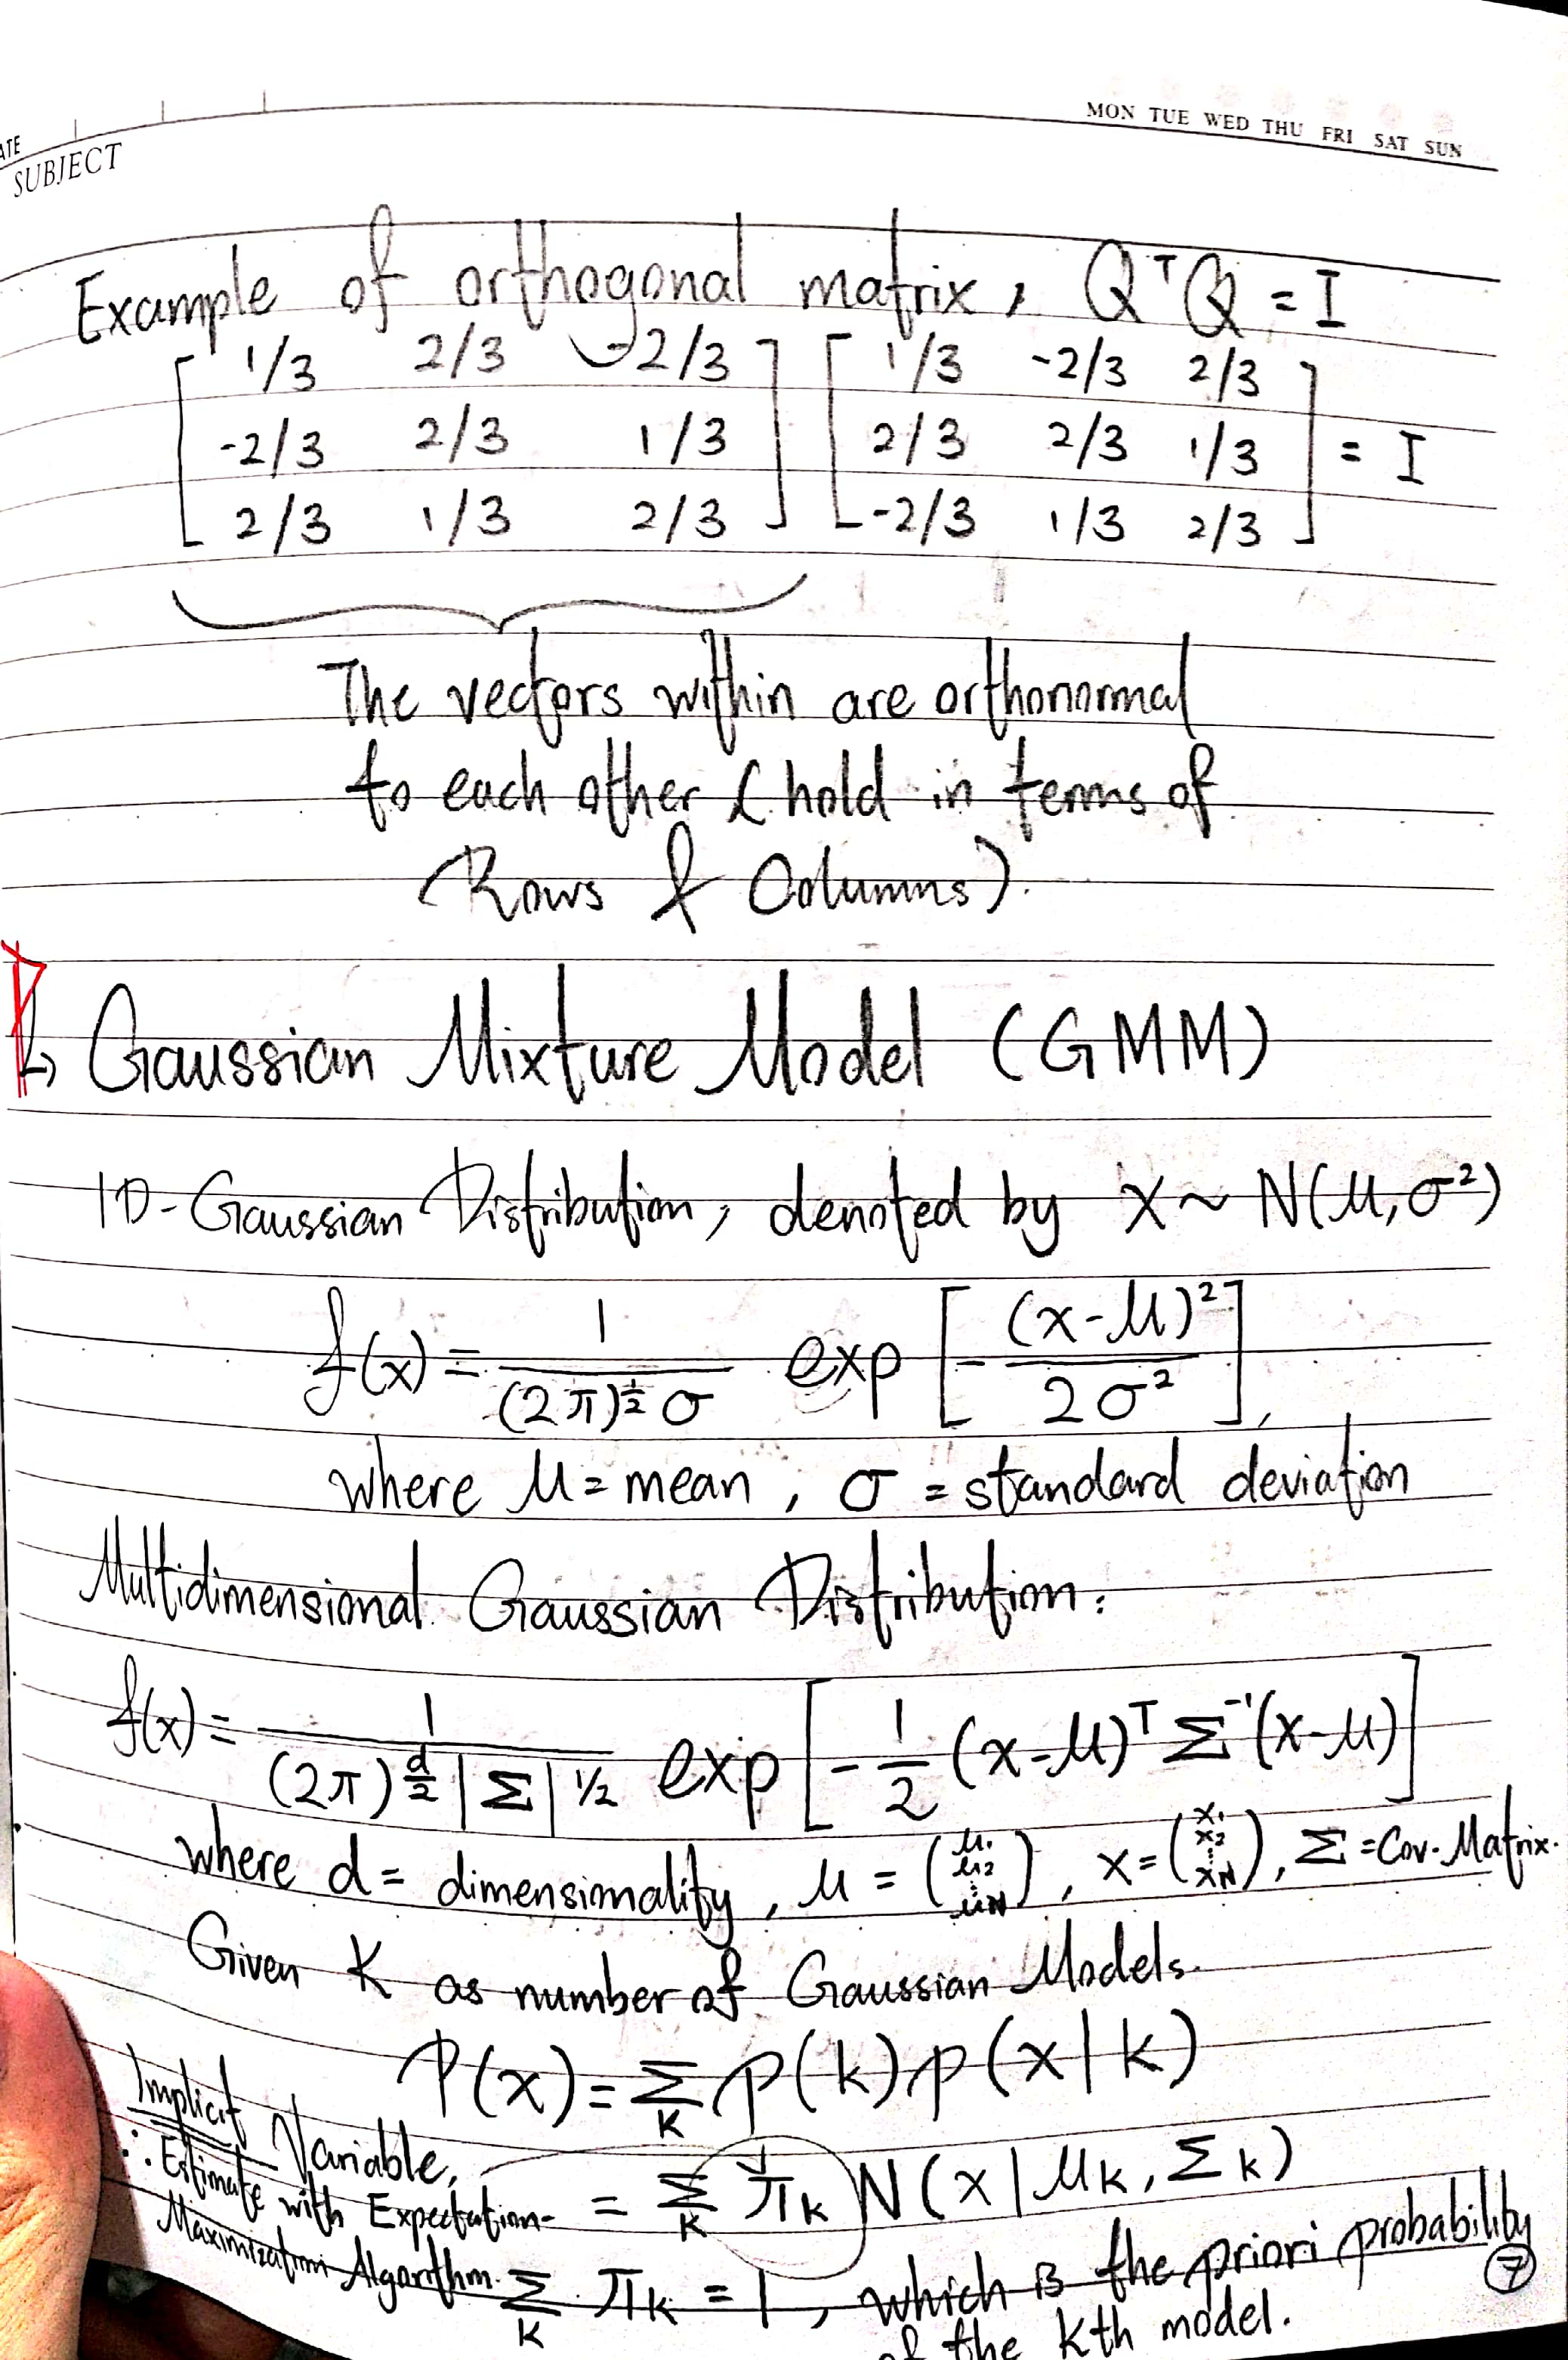 MON TUE WED THU FRI SAT SUN
ATE
SUBJECT
Example of orthogonal matrix, QᵀQ = I
[ 1/3 2/3 -2/3 ] [ 1/3 -2/3 2/3 ]
[ -2/3 2/3 1/3 ] [ 2/3 2/3 1/3 ] = I
[ 2/3 1/3 2/3 ] [ -2/3 1/3 2/3 ]
The vectors within are orthonormal
to each other (hold in terms of
Rows & Columns).
↳ Gaussian Mixture Model (GMM)
1D-Gaussian Distribution, denoted by X ~ N(μ, σ²)
f(x) = 1/((2π)^½ σ) exp [ - (x-μ)² / 2σ² ],
where μ = mean, σ = standard deviation
Multidimensional Gaussian Distribution:
f(x) = 1/((2π)^(d/2) |Σ|^1/2) exp [ - 1/2 (x-μ)ᵀ Σ⁻¹ (x-μ) ]
where d = dimensionality, μ = (μ₁ μ₂ ⋮ μN), x = (x₁ x₂ ⋮ xN), Σ = Cov. Matrix.
Given K as number of Gaussian Models.
P(x) = Σ_K p(k) p(x|k)
= Σ_K πk N(x | μk, Σk)
Implicit Variable,
∴ Estimate with Expectation-
Maximization Algorithm.
Σ_K πk = 1, which is the priori probability
of the kth model.
7